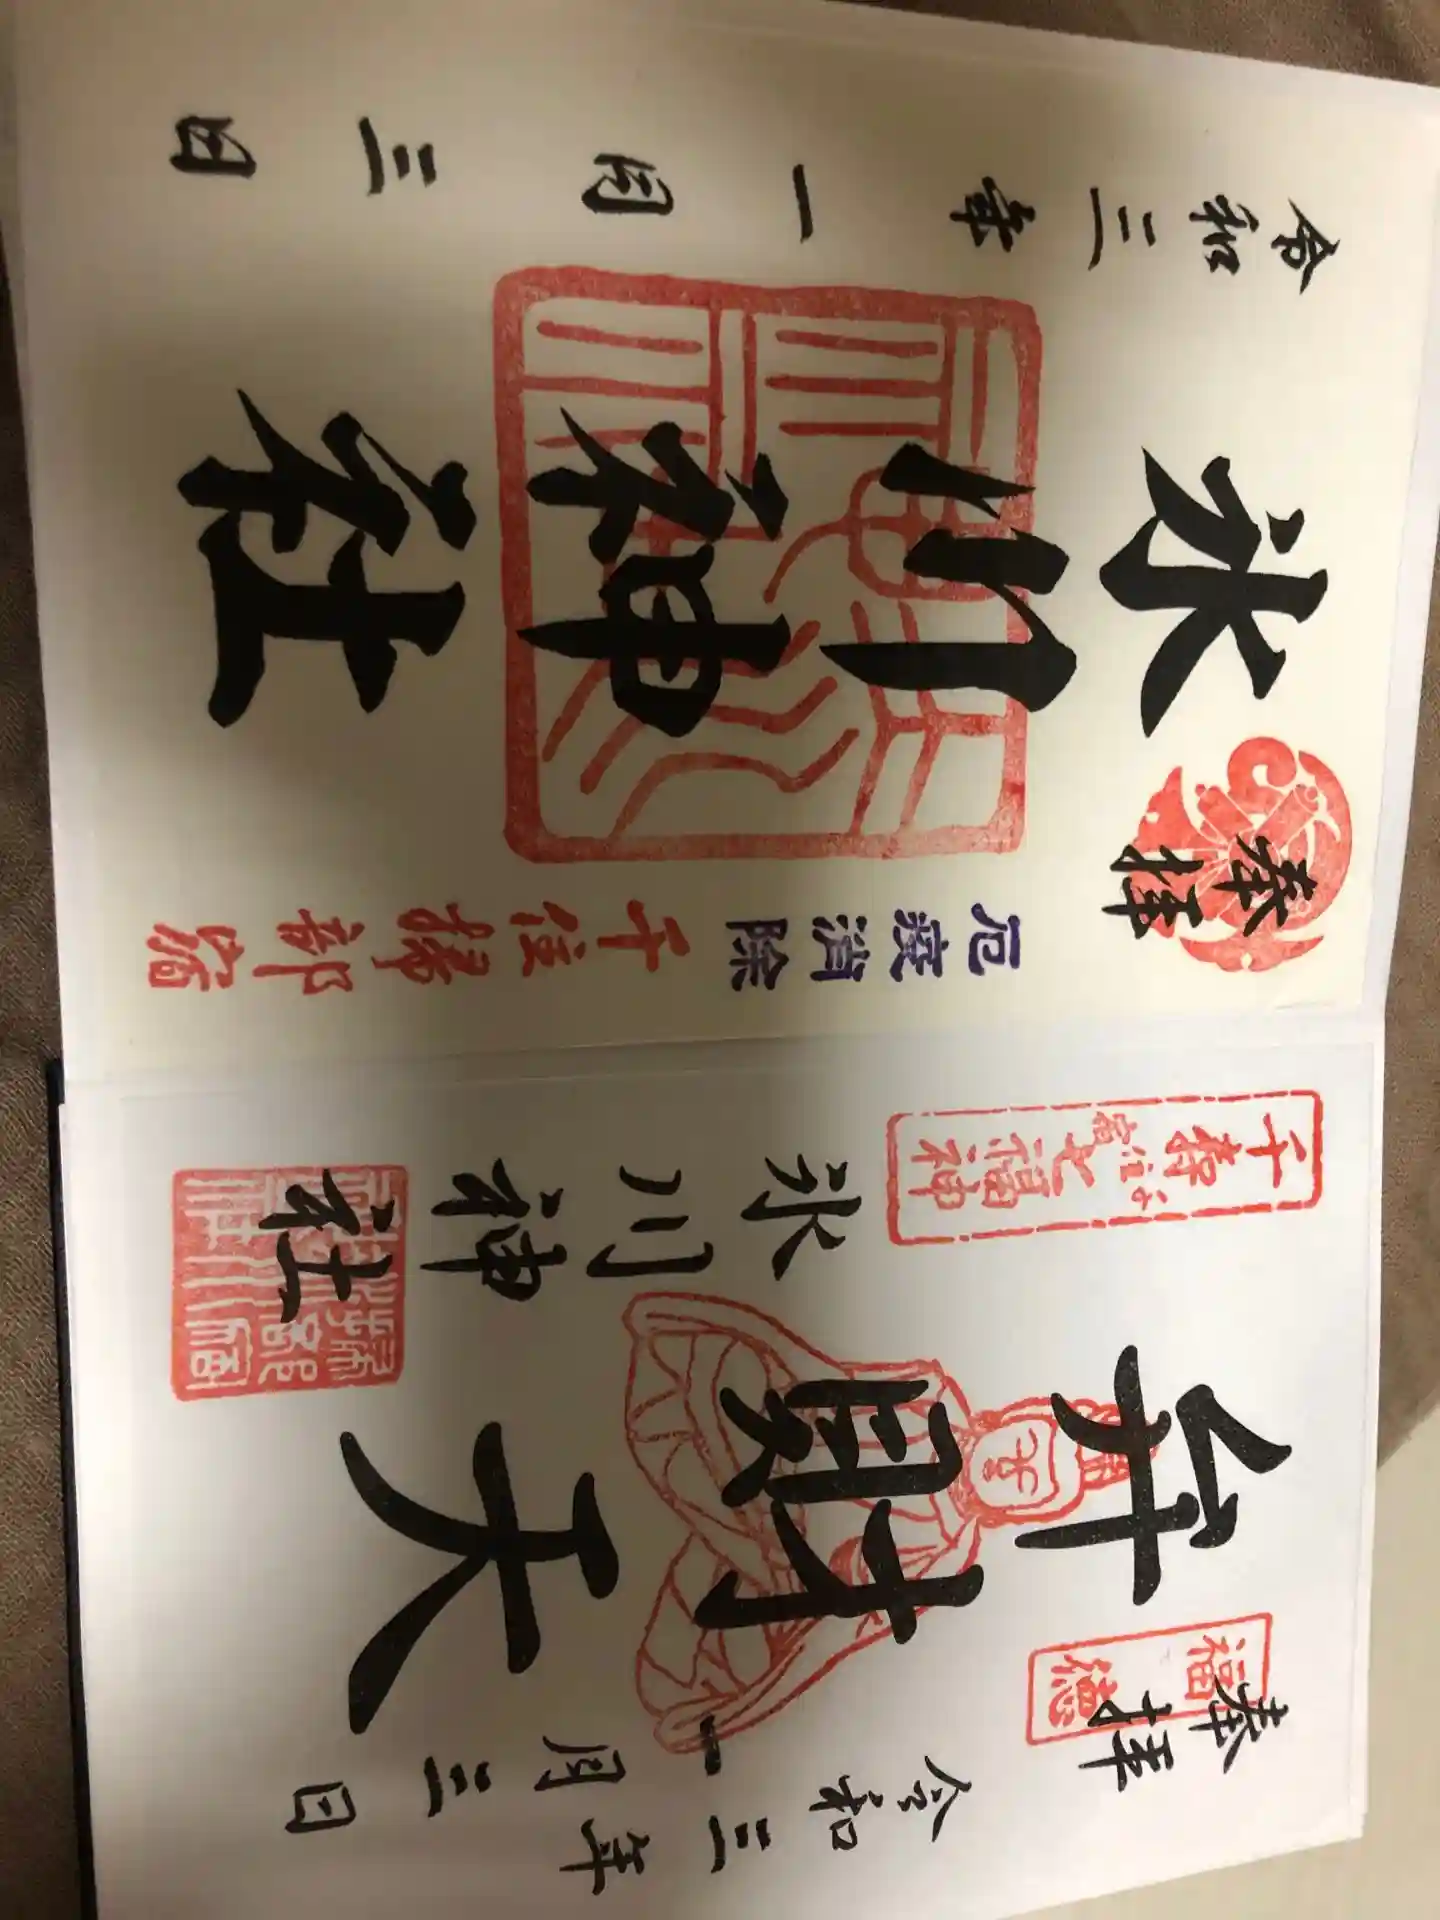 奉拝
福徳
令和三年
一月三日
弁財天
氷川神社
千寿七福神
奉拝
厄疫消除
千住掃部宿
氷川神社
令和三年一月三日